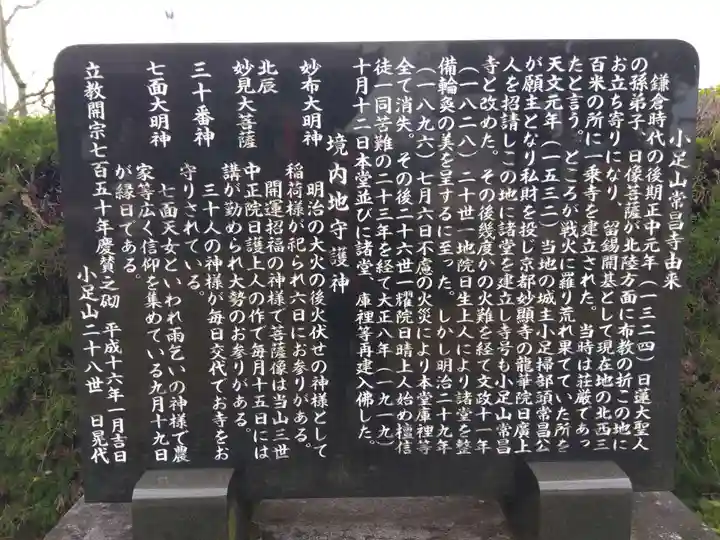 小足山常昌寺由来
鎌倉時代の後期正中元年（一三二四）日蓮大聖人
の孫弟子、日像菩薩が北陸方面に布教の折この地に
お立ち寄りになり、留錫開基として現在地の北西三
百米の所に一乗寺を建立された。当時は荘厳であっ
たと言う。ところが戦火に罹り荒れ果てていた所を
天文元年（一五三二）当地の城主小足掃部頭常昌公
が願主となり私財を投じ京都妙顕寺の龍華院日廣上
人を招請しこの地に諸堂を建立し寺号も小足山常昌
寺と改めた。その後幾度かの火難を経て文政十一年
（一八二八）二十世一地院日生上人により諸堂を整
備輪奐の美を呈するに至った。しかし明治二十九年
（一八九六）七月六日不慮の火災により本堂庫裡等
全て消失。その後二十六世一耀院日晴上人始め檀信
徒一同苦難の二十三年を経て大正八年（一九一九）
十月十二日本堂並びに諸堂、庫裡等再建入佛した。
境内地守護神
妙布大明神　明治の大火の後火伏せの神様として
稲荷様が祀られ六日にお参りがある。
北辰　開運招福の神様で菩薩像は当山三世
妙見大菩薩　中正院日護上人の作で毎月十五日には
講が勤められ大勢のお参りがある。
三十番神　三十人の神様が毎日交代でお寺をお
守りされている。
七面大明神　七面天女といわれ雨乞いの神様で農
家等広く信仰を集めている九月十九日
が縁日である。
立教開宗七百五十年慶賛之砌　平成十六年一月吉日
小足山二十八世　日晃代